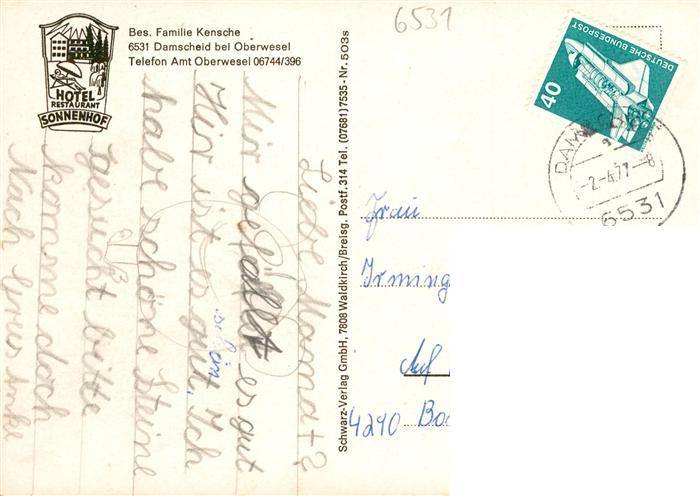 6531
Bes. Familie Kensche
6531 Damscheid bei Oberwesel
Telefon Amt Oberwesel 06744/396
HOTEL
RESTAURANT
SONNENHOF
Liebe Mama + ?
Mir gefällt es gut
Hir ist es gut, Ich
schöin
habe schöne Steine
gesucht bitte
komme doch
Nach
Schwarz-Verlag GmbH, 7808 Waldkirch/Breisg. Postf. 314 Tel. (07681) 7535 - Nr. 503s
DEUTSCHE BUNDESPOST
40
DAM
-2.-4.77-8
6531
Frau
Irming
Auf
4290 Boc